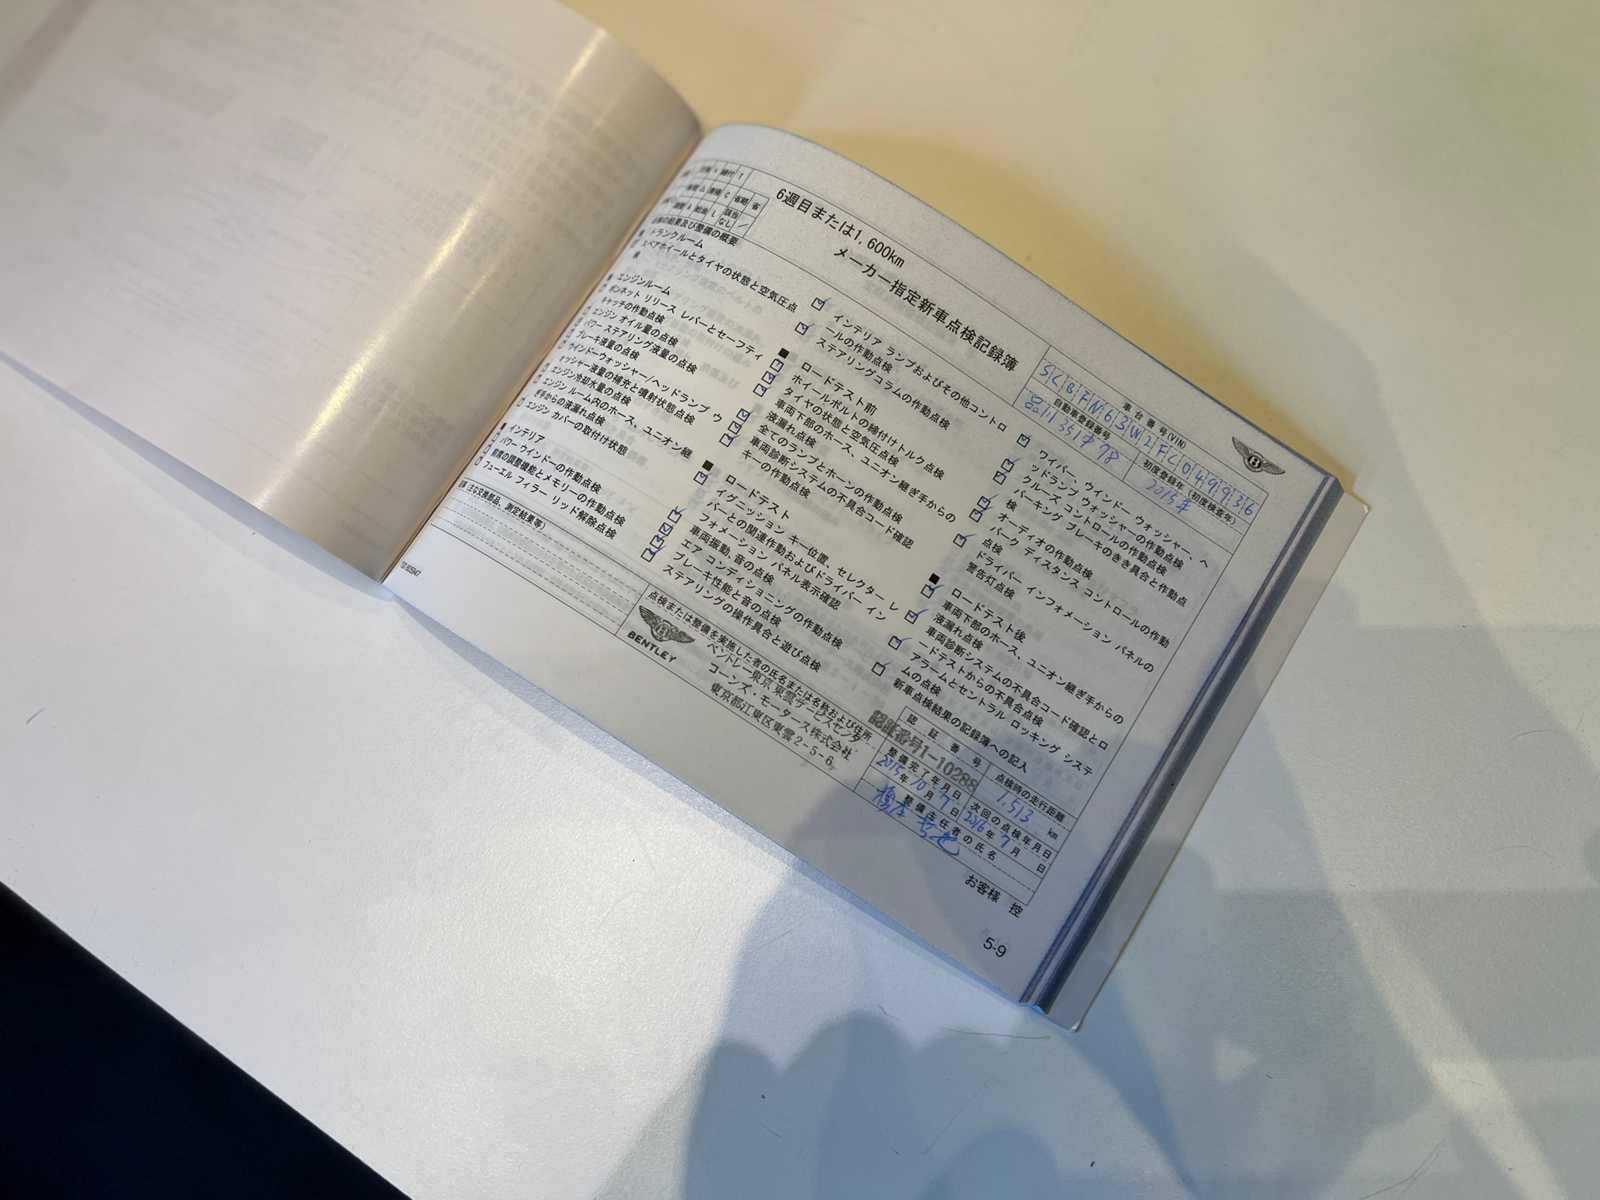 6週目または1,600km
メーカー指定新車点検記録簿
車台番号(VIN)
SCBFN63W2FC049936
自動車登録番号
初度登録年(初度検査年)
品川 351 98
2015年
省略
該当なし
の結果及び整備の概要
トランクルーム
スペアホイールとタイヤの状態と空気圧点検
エンジンルーム
ボンネット リリース レバーとセーフティ
キャッチの作動点検
エンジン オイル量の点検
パワー ステアリング液量の点検
ブレーキ液量の点検
ウインドーウォッシャー/ヘッドランプ ウ
ォッシャー液量の補充と噴射状態点検
エンジン冷却水量の点検
エンジン ルーム内のホース、ユニオン継
ぎ手からの液漏れ点検
エンジン カバーの取付け状態
■ インテリア
パワー ウインドーの作動点検
前席の調整機能とメモリーの作動点検
フューエル フィラー リッド解除点検
インテリア ランプおよびその他コントロ
ールの作動点検
ステアリングコラムの作動点検
■ ロードテスト前
ホイールボルトの締付けトルク点検
タイヤの状態と空気圧点検
車両下部のホース、ユニオン継ぎ手からの
液漏れ点検
全てのランプとホーンの作動点検
車両診断システムの不具合コード確認
キーの作動点検
■ ロードテスト
イグニッション キー位置、セレクター レ
バーとの関連作動およびドライバー イン
フォメーション パネル表示確認
車両振動、音の点検
エア コンディショニングの作動点検
ブレーキ性能と音の点検
ステアリングの操作具合と遊び点検
ワイパー、ウインドー ウォッシャー、ヘ
ッドランプ ウォッシャーの作動点検
クルーズ コントロールの作動点検
パーキング ブレーキのきき具合と作動点
検
オーディオの作動点検
パーク ディスタンス コントロールの作動
点検
ドライバー インフォメーション パネルの
警告灯点検
■ ロードテスト後
車両下部のホース、ユニオン継ぎ手からの
液漏れ点検
車両診断システムの不具合コード確認とロ
ードテストからの不具合点検
アラームとセントラル ロッキング システ
ムの点検
新車点検結果の記録簿への記入
(主な交換部品、測定結果等)
点検または整備を実施した者の氏名または名称および住所
BENTLEY
ベントレー東京 東雲サービスセンター
コーンズ・モータース株式会社
東京都江東区東雲2-5-6
認証番号
認証番号1-10288
点検時の走行距離
1,513 km
整備完了年月日
2015年10月7日
次回の点検年月日
2016年7月 日
整備主任者の氏名
お客様 控
5-9